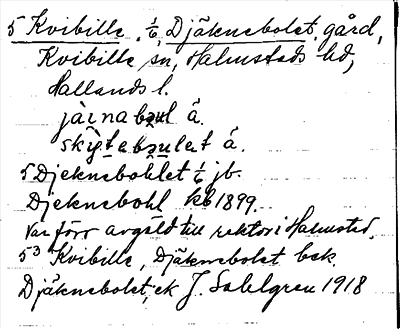 5 Kvibille, 1/6, Djäknebolet, gård,
Kvibille sn, Halmstads hd,
Hallands l.
å.
å.
5 Djeknebohlet 1/6 jb.
Djeknebohl kb 1899.
Var förr avgäld till rektor i Halmstad.
5³ Kvibille, Djäknebolet bek.
Djäknebolet, ek J. Sahlgren 1918